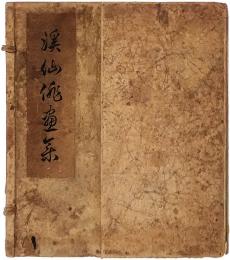 溪仙俳畫集